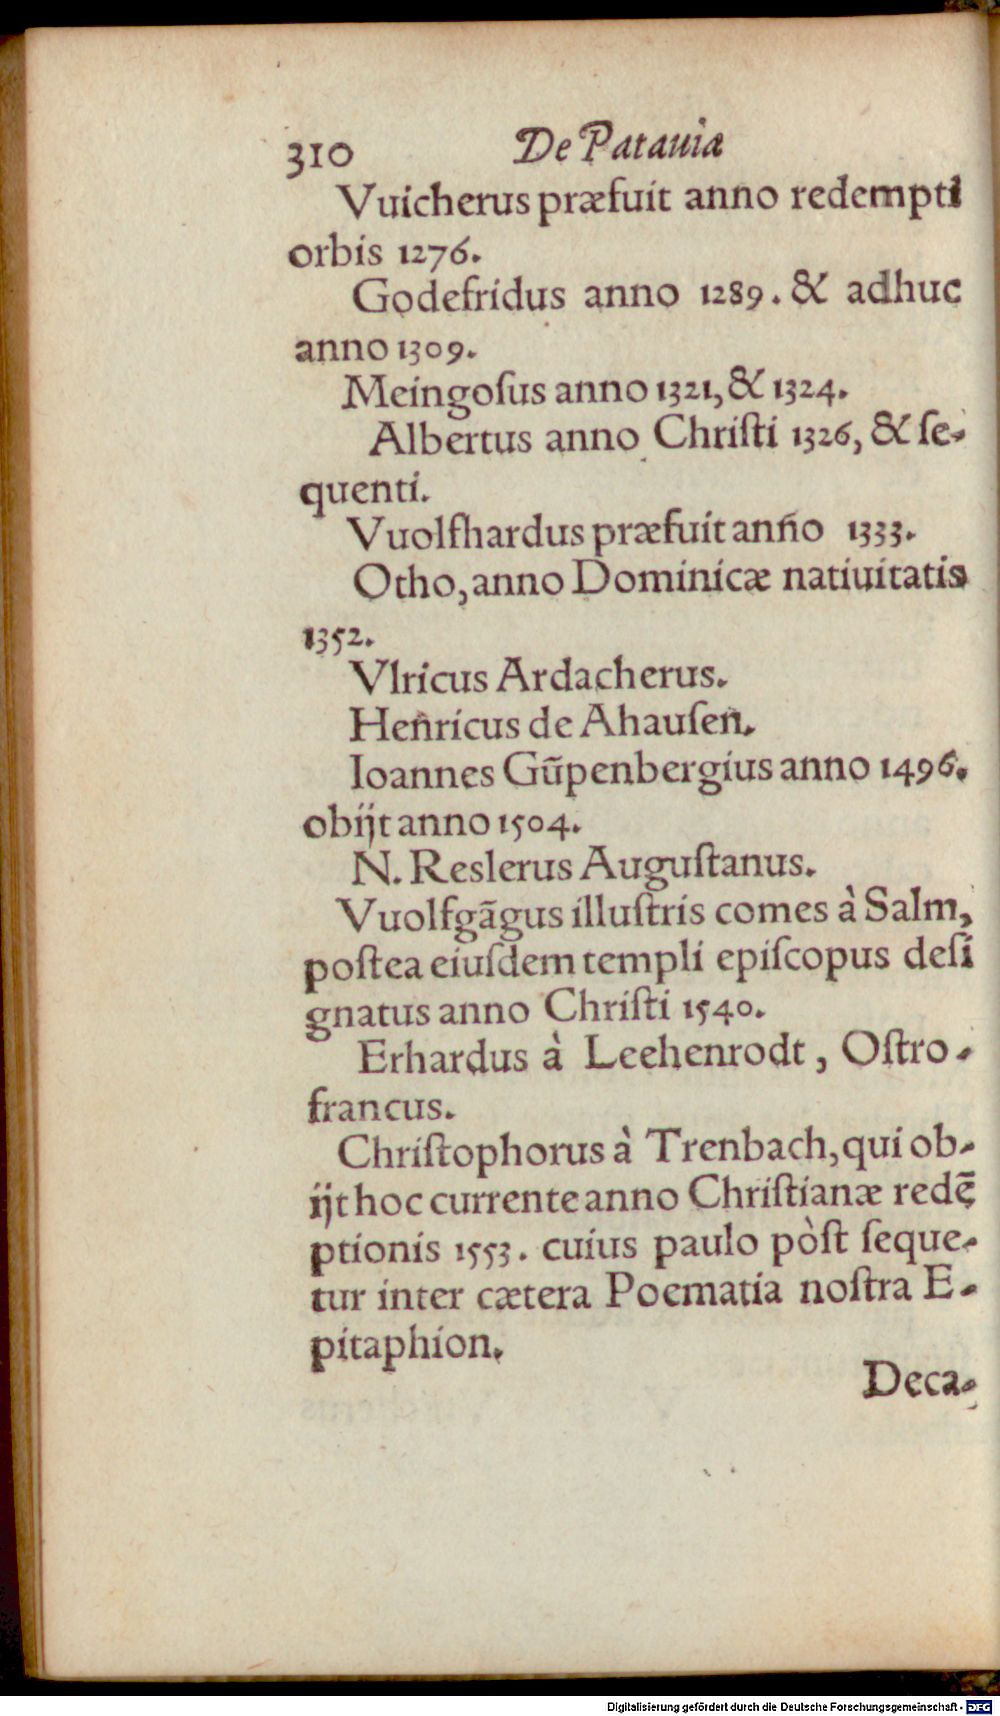 310 De Patauia
Vuicherus præfuit anno redempti
orbis 1276.
Godefridus anno 1289. & adhuc
anno 1309.
Meingoſus anno 1321, & 1324.
Albertus anno Chriſti 1326, & ſe-
quenti.
Vuolfhardus præfuit anño 1333.
Otho, anno Dominicæ natiuitatis
1352.
Vlricus Ardacherus.
Heñricus de Ahauſen.
Ioannes Gũpenbergius anno 1496.
obijt anno 1504.
N. Reslerus Auguſtanus.
Vuolfgãgus illuſtris comes à Salm,
poſtea eiuſdem templi epiſcopus deſi
gnatus anno Chriſti 1540.
Erhardus à Leehenrodt, Oſtro-
francus.
Chriſtophorus à Trenbach, qui ob-
ijt hoc currente anno Chriſtianæ redẽ
ptionis 1553. cuius paulo pòſt ſeque-
tur inter cætera Poematia noſtra E-
pitaphion.
Deca-
Digitalisierung gefördert durch die Deutsche Forschungsgemeinschaft - DFG